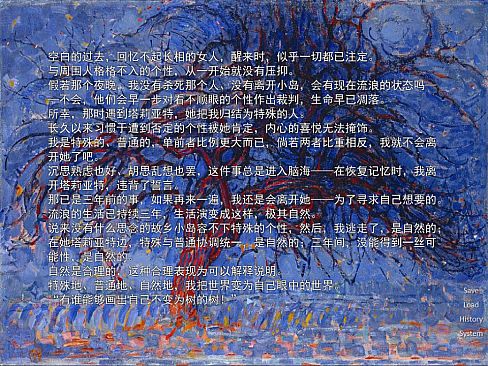 空白的过去，回忆不起长相的女人，醒来时，似乎一切都已注定。
与周围人格格不入的个性，从一开始就没有压抑。
假若那个夜晚，我没有杀死那个人，没有离开小岛，会有现在流浪的状态吗
—不会，他们会早一步对看不顺眼的个性作出裁判，生命早已凋落。
所幸，那时遇到塔莉亚特，她把我归结为特殊的人。
长久以来习惯于遭到否定的个性被她肯定，内心的喜悦无法掩饰。
我是特殊的、普通的，单前者比例更大而已，倘若两者比重相反，我就不会离
开她了吧。
沉思熟虑也好、胡思乱想也罢，这件事总是进入脑海——在恢复记忆时，我离
开塔莉亚特，违背了誓言。
那已是三年前的事，如果再来一遍，我还是会离开她——为了寻求自己想要的。
流浪的生活已持续三年，生活演变成这样，极其自然。
说来没有什么思念的故乡小岛容不下特殊的个性，然后，我逃走了，是自然的；
在她塔莉亚特边，特殊与普通协调统一，是自然的；三年间，没能得到一丝可
能性，是自然的。
自然是合理的，这种合理表现为可以解释说明。
特殊地、普通地、自然地，我把世界变为自己眼中的世界。
“有谁能够画出自己不变为树的树！”
Save
Load
History
System